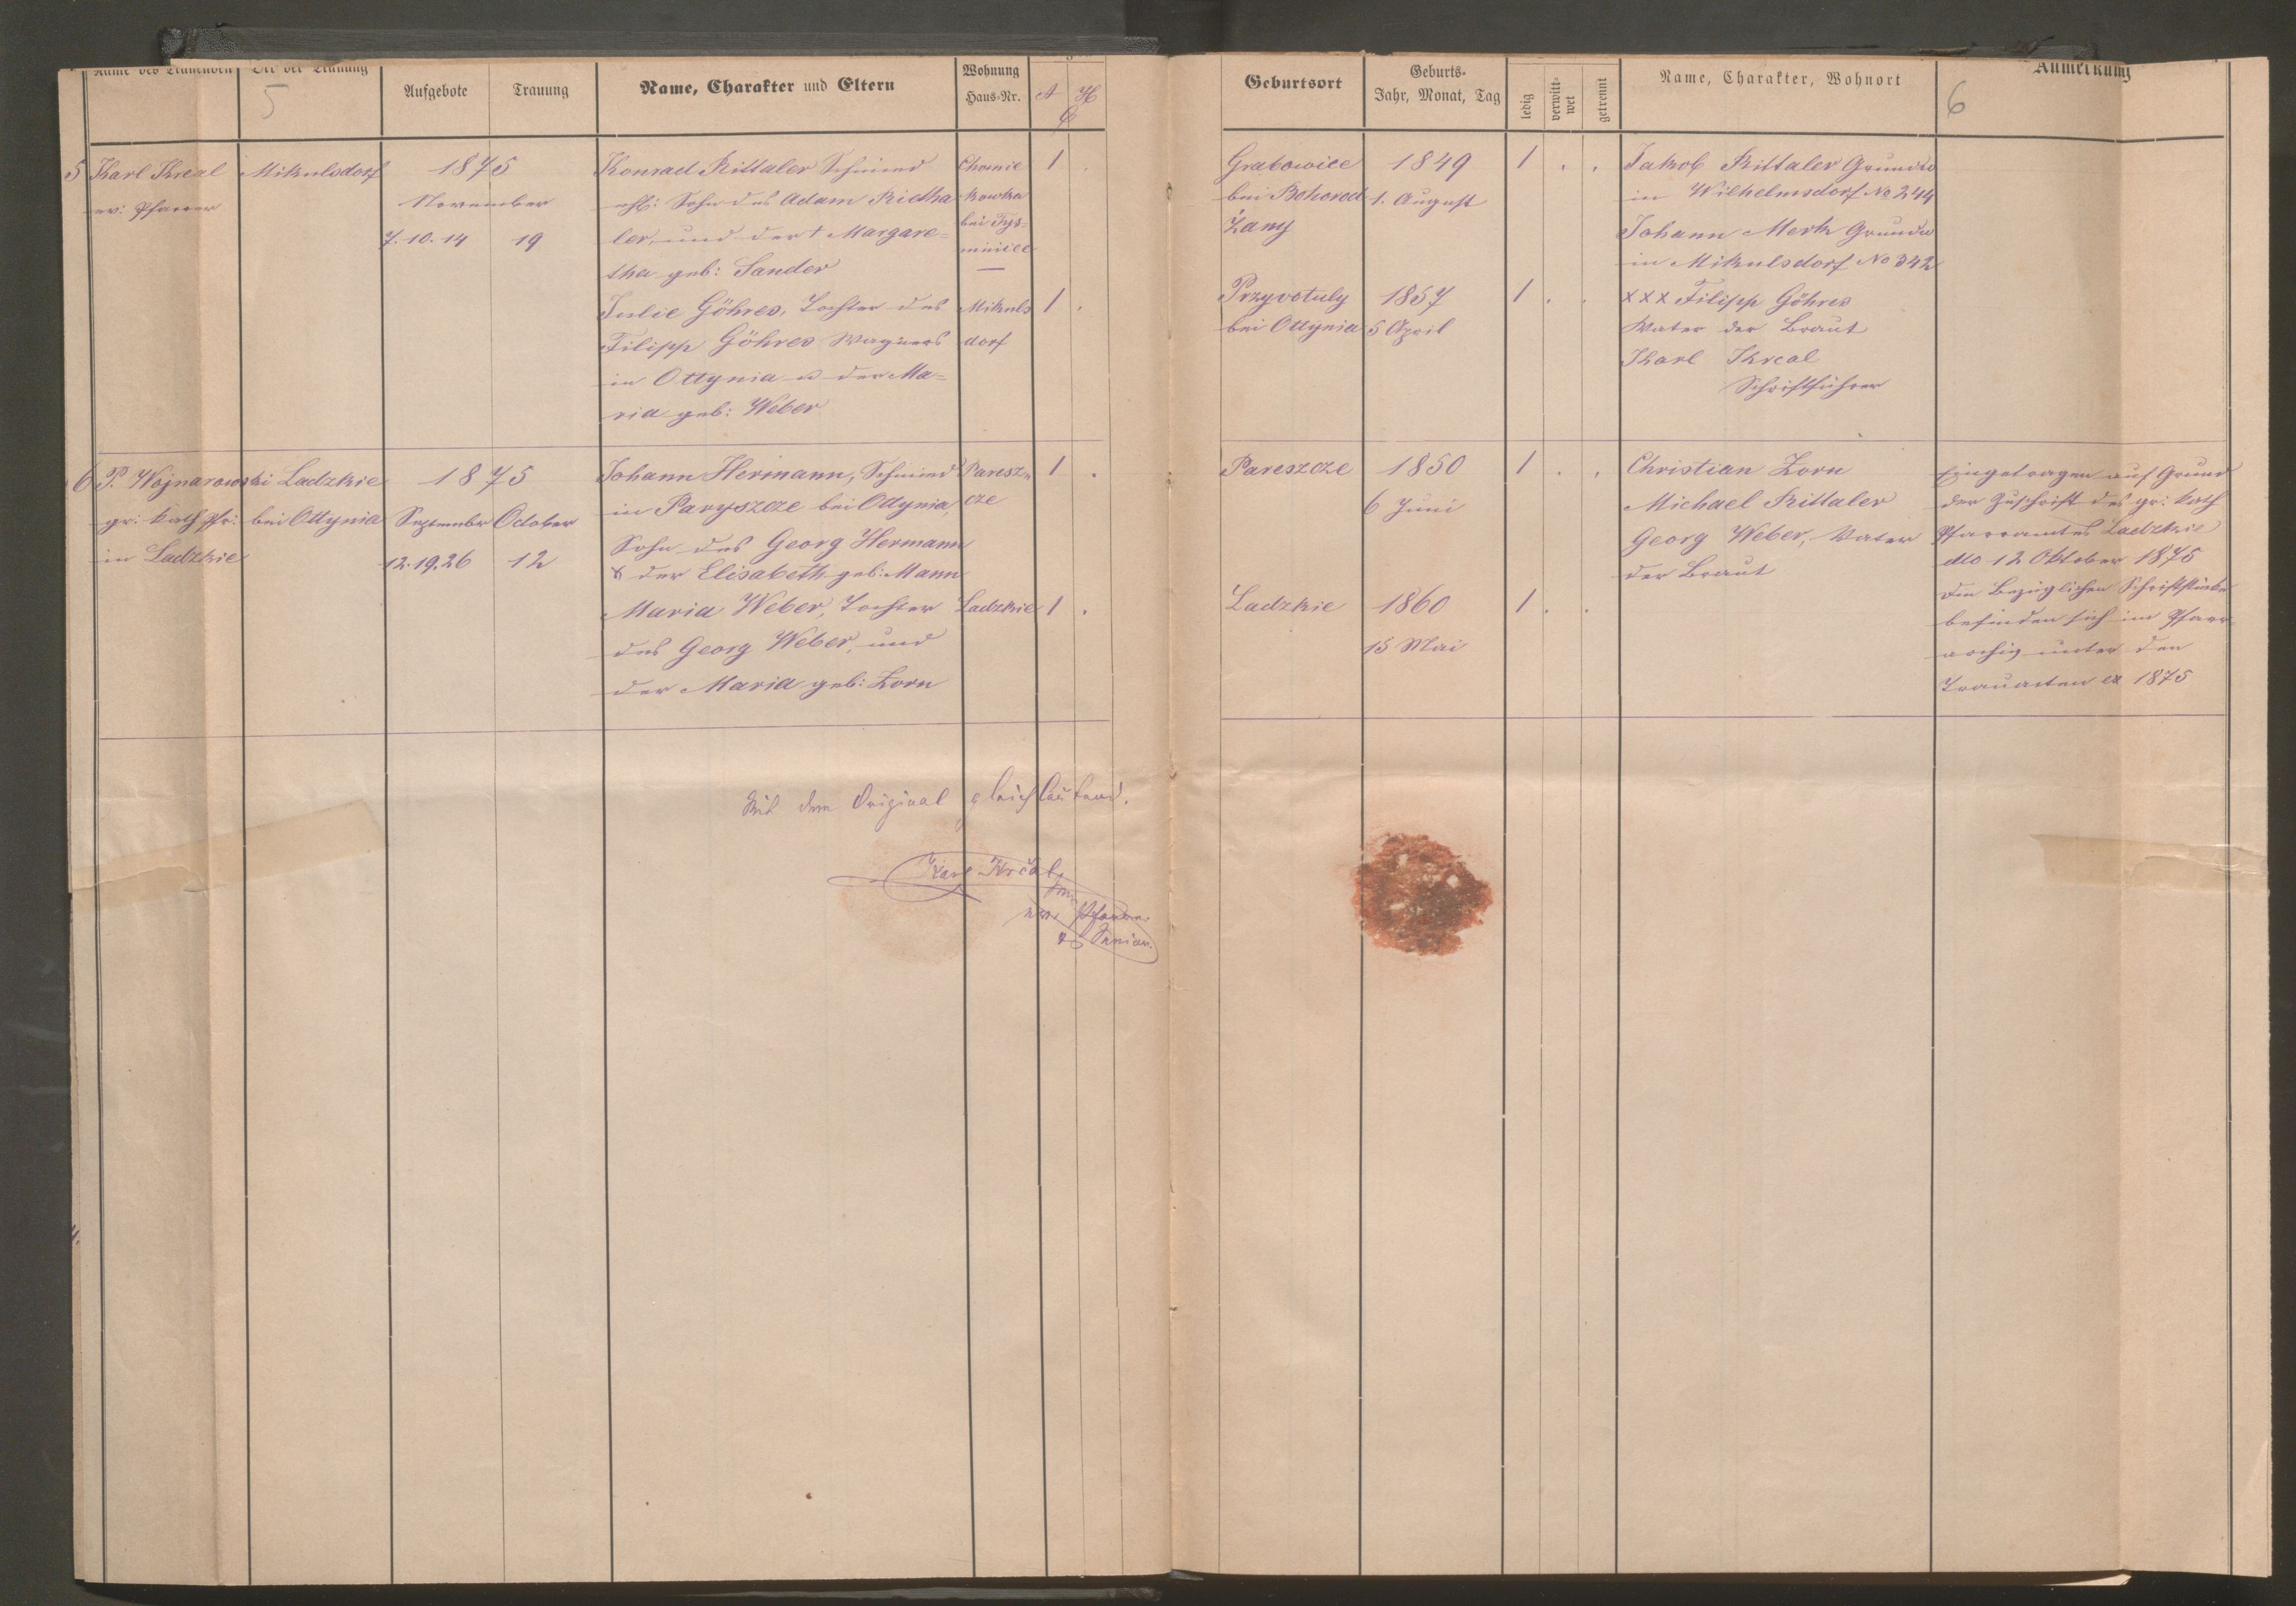 Name des Trauenden
Ort der Trauung
5
Aufgebote
Trauung
Name, Charakter und Eltern
Wohnung
Haus-Nr.
A
H
C
Geburtsort
Geburts-
Jahr, Monat, Tag
ledig
verwitt-
wet
getrennt
Name, Charakter, Wohnort
Anmerkung
6
5
Karl Krcal
ev: Pfarrer
Mikulsdorf
1875
November
7. 10. 14
19
Konrad Rittaler Schmied
ehl: Sohn des Adam Rietha
ler, und der † Margare=
tha geb: Sander
Chomie
kowka
bei Tys=
minice
1
Grabowice
bei Bohorod
žany
1849
1. August
1 . .
Jakob Rittaler Grundw
in Wilhelmsdorf No 244
Johann Merk Grundw
in Mikulsdorf No 342
Julie Göhres, Tochter des
Filipp Göhres Wagners
in Ottynia u der Ma=
ria geb: Weber
Mikuls
dorf
1 .
Przyrotuly
bei Ottynia
1857
5 April
1 . .
XXX Filipp Göhres
Vater der Braut
Karl Krcal
Schriftführer
6
P. Wojnarowski
gr: kath Pfr:
in Ladzkie
Ladzkie
bei Ottynia
1875
September October
12. 19. 26
12
Johann Hermann, Schmied
in Paryszcze bei Ottynia,
Sohn des Georg Hermann
& der Elisabeth geb: Mann
Paresz=
cze
1 .
Pareszcze
1850
6 Juni
1 . .
Christian Zorn
Michael Rittaler
Georg Weber, Vater
der Braut
Eingetragen auf Grund
der Zuschrift des gr: kath
Pfarramtes Ladzkie
dto 12 Oktober 1875
Die bezüglichen Schriftstücke
befinden sich im Pfarr
archiv unter den
Trauacten ex 1875
Maria Weber, Tochter
des Georg Weber, und
der Maria geb: Zorn
Ladzkie
1 .
Ladzkie
1860
15 Mai
1 . .
Mit dem Original gleichlautend.
Karl Krčal
ev. Pfarrer
& Senior.